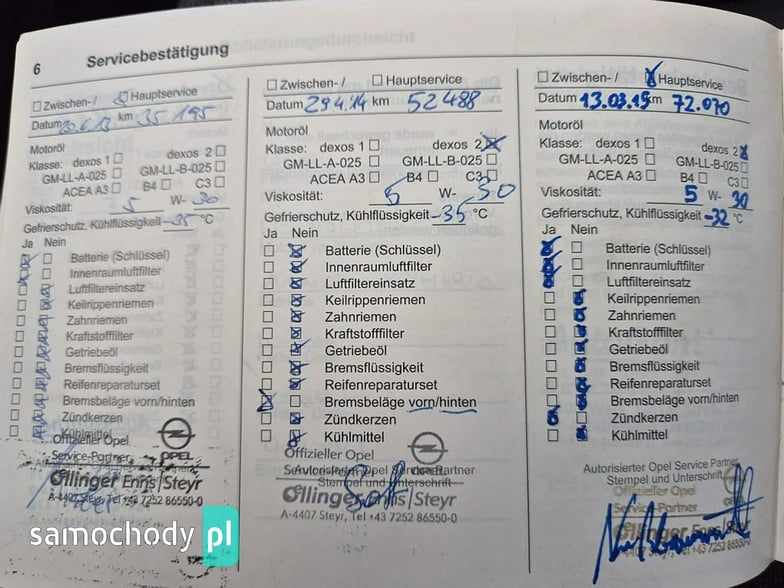 6 Servicebestätigung
Zwischen- / Hauptservice
Datum km 35 195
Motoröl
Klasse: dexos 1 dexos 2
GM-LL-A-025 GM-LL-B-025
ACEA A3 B4 C3
Viskosität: 5 W- 30
Gefrierschutz, Kühlflüssigkeit -35 °C
Ja Nein
Batterie (Schlüssel)
Innenraumluftfilter
Luftfiltereinsatz
Keilrippenriemen
Zahnriemen
Kraftstofffilter
Getriebeöl
Bremsflüssigkeit
Reifenreparaturset
Bremsbeläge vorn/hinten
Zündkerzen
Kühlmittel
Offizieller Opel
Service-Partner
OPEL
Öllinger Enns|Steyr
A-4407 Steyr, Tel +43 7252 86550-0
Zwischen- / Hauptservice
Datum 29.4.14 km 52 488
Motoröl
Klasse: dexos 1 dexos 2
GM-LL-A-025 GM-LL-B-025
ACEA A3 B4 C3
Viskosität: 5 W- 30
Gefrierschutz, Kühlflüssigkeit -35 °C
Ja Nein
Batterie (Schlüssel)
Innenraumluftfilter
Luftfiltereinsatz
Keilrippenriemen
Zahnriemen
Kraftstofffilter
Getriebeöl
Bremsflüssigkeit
Reifenreparaturset
Bremsbeläge vorn/hinten
Zündkerzen
Kühlmittel
Offizieller Opel
Autorisierter Opel Service Partner
Stempel und Unterschrift
Öllinger Enns|Steyr
A-4407 Steyr, Tel +43 7252 86550-0
Zwischen- / Hauptservice
Datum 13.03.15 km 72.070
Motoröl
Klasse: dexos 1 dexos 2
GM-LL-A-025 GM-LL-B-025
ACEA A3 B4 C3
Viskosität: 5 W- 30
Gefrierschutz, Kühlflüssigkeit -32 °C
Ja Nein
Batterie (Schlüssel)
Innenraumluftfilter
Luftfiltereinsatz
Keilrippenriemen
Zahnriemen
Kraftstofffilter
Getriebeöl
Bremsflüssigkeit
Reifenreparaturset
Bremsbeläge vorn/hinten
Zündkerzen
Kühlmittel
Autorisierter Opel Service Partner
Stempel und Unterschrift
Offizieller Opel
Service-Partner
Öllinger Enns|Steyr
samochody pl